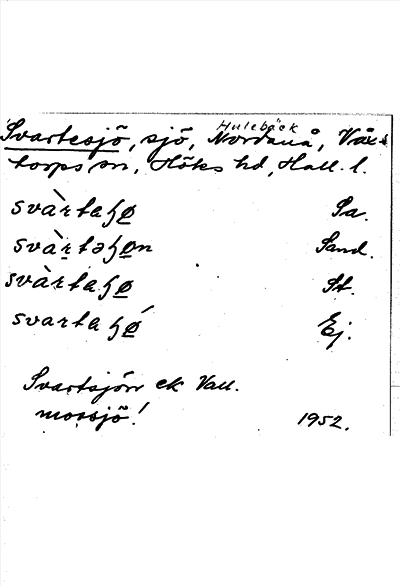 Svartesjö, sjö, Hulebäck Nordanå, Våx-
torps sn, Höks hd, Hall. l.
svàrtaɧø Sa.
svàrtəɧøn Sand.
svàrtaɧø St.
svartaɧǿ Ej.
Svartsjön ek Vall.
mossjö!
1952.